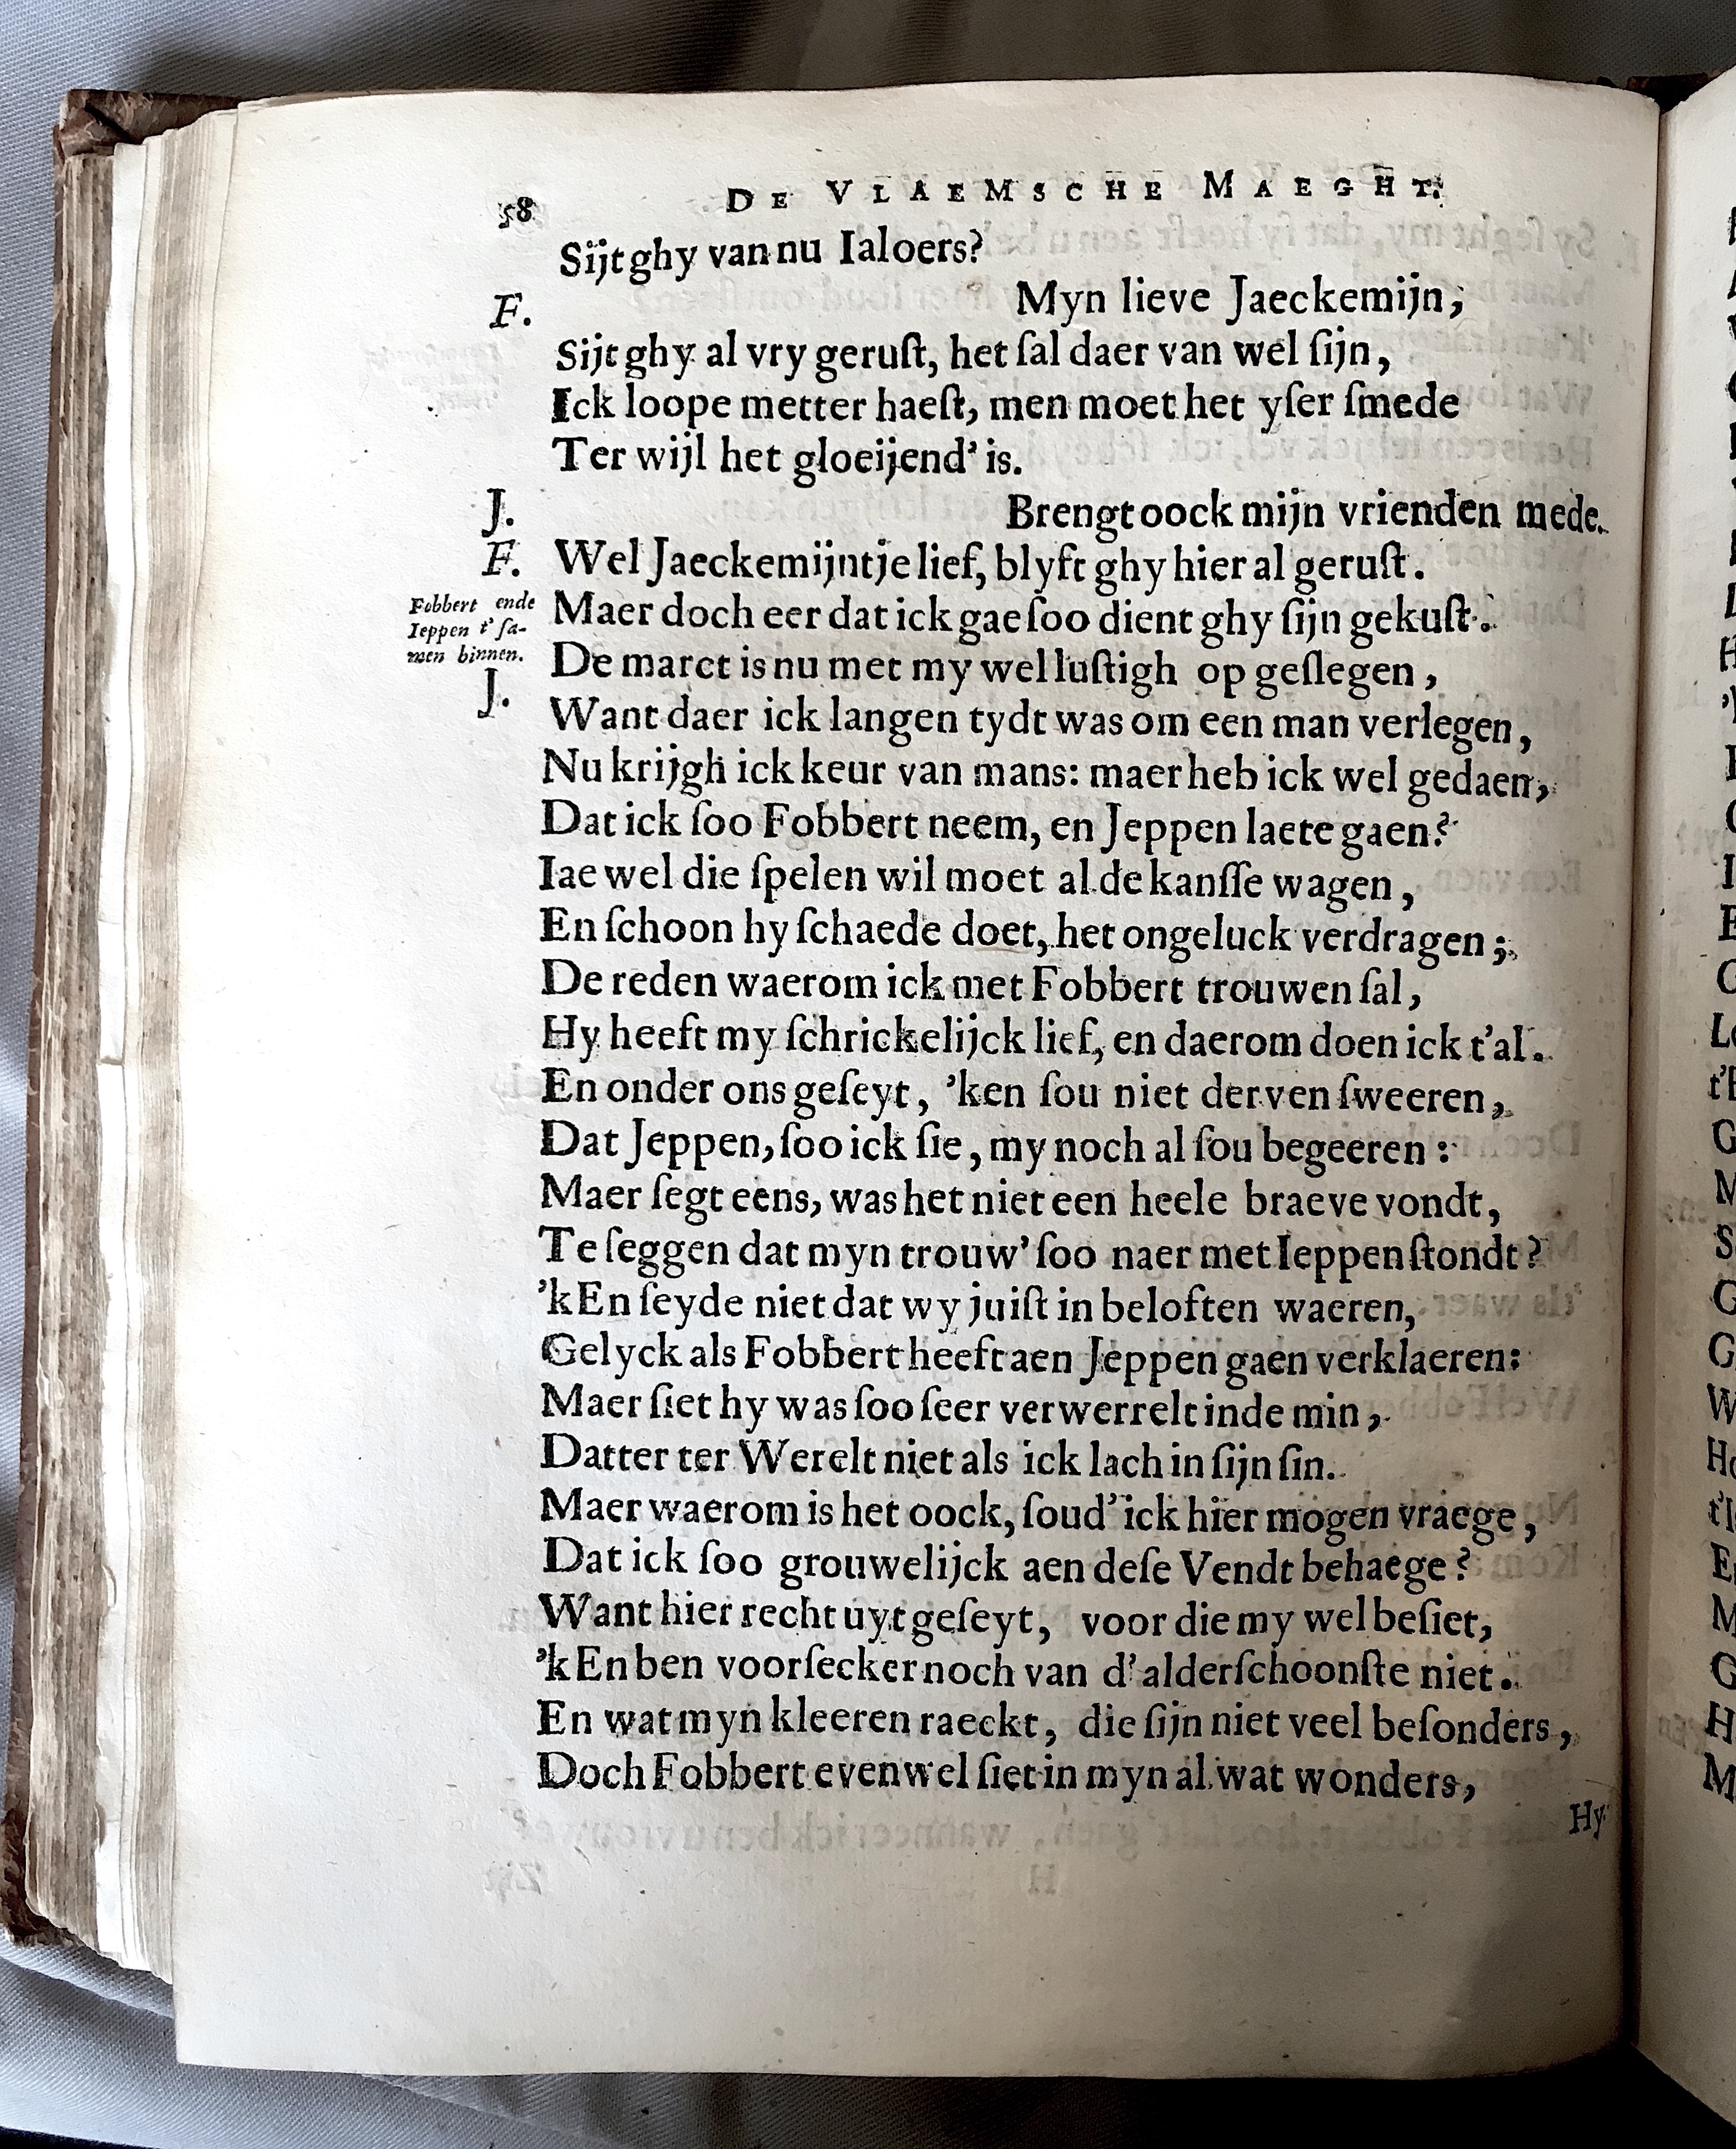 58 DE VLAEMSCHE MAEGHT.
Sijt ghy van nu Ialoers?
F. Myn lieve Jaeckemijn,
Sijt ghy al vry geruſt, het ſal daer van wel ſijn,
Ick loope metter haeſt, men moet het yſer ſmede
Ter wijl het gloeijend' is.
J. Brengt oock mijn vrienden mede.
F. Wel Jaeckemijntje lief, blyft ghy hier al geruſt.
Fobbert ende
Ieppen t'ſa-
men binnen.
Maer doch eer dat ick gae ſoo dient ghy ſijn gekuſt.
J. De marct is nu met my wel luſtigh op geſlegen,
Want daer ick langen tydt was om een man verlegen,
Nu krijgh ick keur van mans: maer heb ick wel gedaen,
Dat ick ſoo Fobbert neem, en Jeppen laete gaen?
Iae wel die ſpelen wil moet al de kanſſe wagen,
En ſchoon hy ſchaede doet, het ongeluck verdragen;
De reden waerom ick met Fobbert trouwen ſal,
Hy heeft my ſchrickelijck lief, en daerom doen ick t'al.
En onder ons geſeyt, 'ken ſou niet derven ſweeren,
Dat Jeppen, ſoo ick ſie, my noch al ſou begeeren:
Maer ſegt eens, was het niet een heele braeve vondt,
Te ſeggen dat myn trouw' ſoo naer met Ieppen ſtondt?
'kEn ſeyde niet dat wy juiſt in beloften waeren,
Gelyck als Fobbert heeft aen Jeppen gaen verklaeren:
Maer ſiet hy was ſoo ſeer verwerrelt inde min,
Datter ter Werelt niet als ick lach in ſijn ſin.
Maer waerom is het oock, ſoud' ick hier mogen vraege,
Dat ick ſoo grouwelijck aen deſe Vendt behaege?
Want hier recht uyt geſeyt, voor die my wel beſiet,
'kEn ben voorſecker noch van d' alderſchoonſte niet.
En wat myn kleeren raeckt, die ſijn niet veel beſonders,
Doch Fobbert evenwel ſiet in myn al wat wonders,
Hy